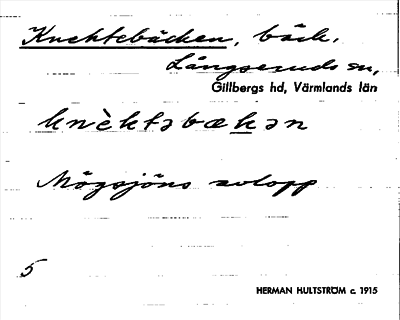 Knektebäcken, bäck.
Långseruds sn,
Gillbergs hd, Värmlands län
knèktəbækən
Mögsjöns avlopp
5
HERMAN HULTSTRÖM c. 1915